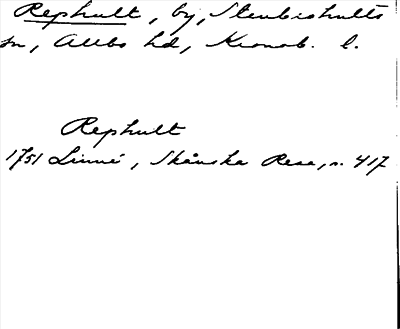 Rephult, by, Stenbrohults
sn, Allbo hd, Kronob. l.
Rephult
1751 Linné, Skånska Resa, s. 417